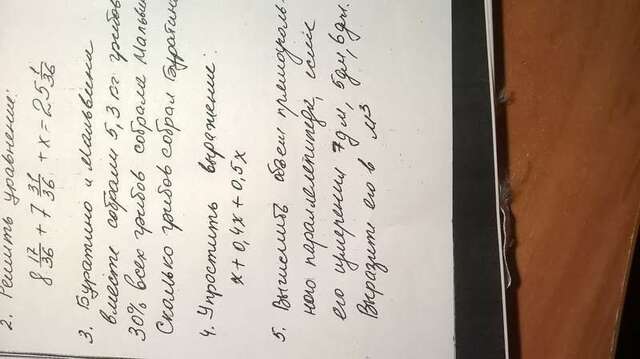 2. Решить уравнение:
8 12/36 + 7 31/36 + x = 25 1/36
3. Буратино и Мальвина
вместе собрали 5,3 кг грибов
30% всех грибов собрала Мальви
Сколько грибов собрал Буратин
4. Упростить выражение:
x + 0,4x + 0,5x
5. Вычислить объем прямоуголь-
ного параллелепипеда, если
его измерения 7дм, 5дм, 6дм.
Выразите его в м³